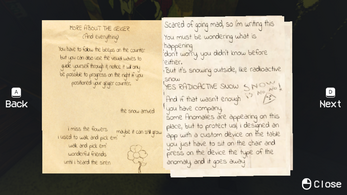 MORE ABOUT THE GEIGER
(And everything)
You have to follow the beeps on the counter
but you can also use the visual waves to
guide yourself through it, notice it will only
be possible to progress on the right if you
positioned your geiger counter.
the snow arrived
i miss the flowers
i used to walk and pick em'
walk and pick em'
wonderful friends
until i heard the siren
maybe it can still grow
Scared of going mad, so im writing this
You must be wondering what is
happening
don't worry, you didn't know before
either.
But it's snowing outside, like radioactive
snow
YES RADIOACTIVE SNOW
SNOW
And if that wasn't enough
you have company.
Some anomalies are appearing on this
place, but to protect you i designed an
app with a custom device on the table
you just have to sit on the chair and
press on the device the type of the
anomaly and it goes away
A
Back
D
Next
Close